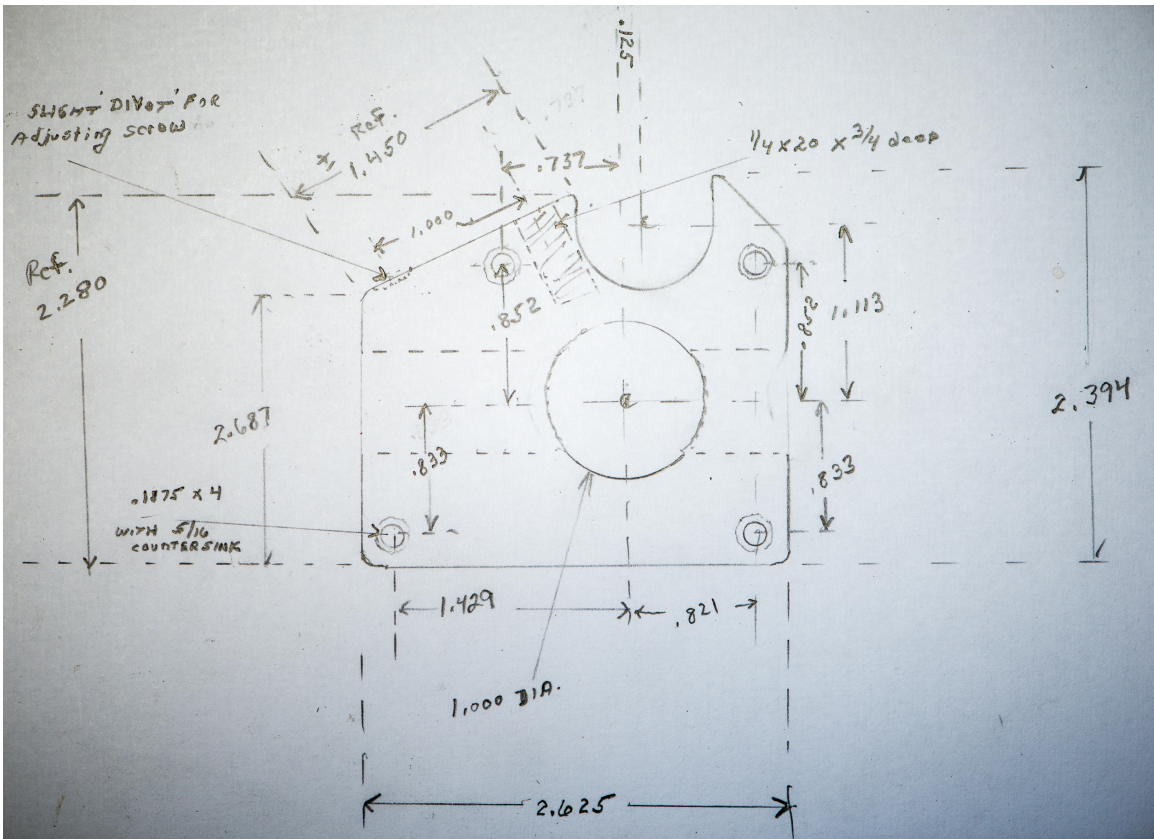 .125
SLIGHT 'DIVOT' FOR
Adjusting screw
± Ref.
1.450
.737
.737
1/4 x 20 x 3/4 deep
1.000
Ref.
2.280
.852
.852
1.113
2.394
2.687
.833
.833
.1875 x 4
WITH 5/16
COUNTERSINK
1.429
.821
1.000 DIA.
2.625